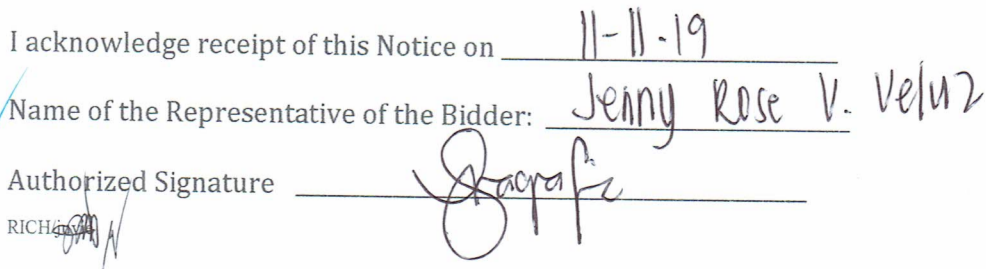 I acknowledge receipt of this Notice on 11-11-19
Name of the Representative of the Bidder: Jenny Rose V. Veluz
Authorized Signature
RICH/